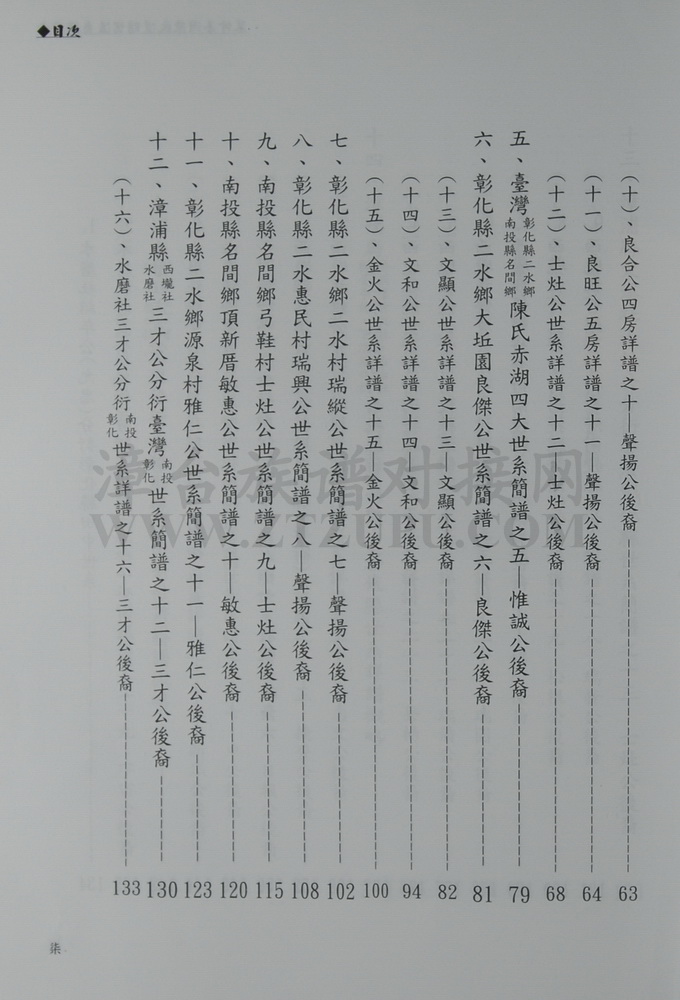 ◆目次
(十)、良合公四房詳譜之十—聲揚公後裔 63
(十一)、良旺公五房詳譜之十一—聲揚公後裔 64
(十二)、士灶公世系詳譜之十二—士灶公後裔 68
五、臺灣彰化縣二水鄉南投縣名間鄉陳氏赤湖四大世系簡譜之五—惟誠公後裔 79
六、彰化縣二水鄉大坵園良傑公世系簡譜之六—良傑公後裔 81
(十三)、文顯公世系詳譜之十三—文顯公後裔 82
(十四)、文和公世系詳譜之十四—文和公後裔 94
(十五)、金火公世系詳譜之十五—金火公後裔 100
七、彰化縣二水鄉二水村瑞縱公世系簡譜之七—聲揚公後裔 102
八、彰化縣二水惠民村瑞興公世系簡譜之八—聲揚公後裔 108
九、南投縣名間鄉弓鞋村士灶公世系簡譜之九—士灶公後裔 115
十、南投縣名間鄉頂新厝敏惠公世系簡譜之十—敏惠公後裔 120
十一、彰化縣二水鄉源泉村雅仁公世系簡譜之十一—雅仁公後裔 123
十二、漳浦縣西壠社水磨社三才公分衍臺灣南投彰化世系簡譜之十二—三才公後裔 130
(十六)、水磨社三才公分衍南投彰化世系詳譜之十六—三才公後裔 133
柒
漳台族谱对接网
WWW.ZTZUPU.COM